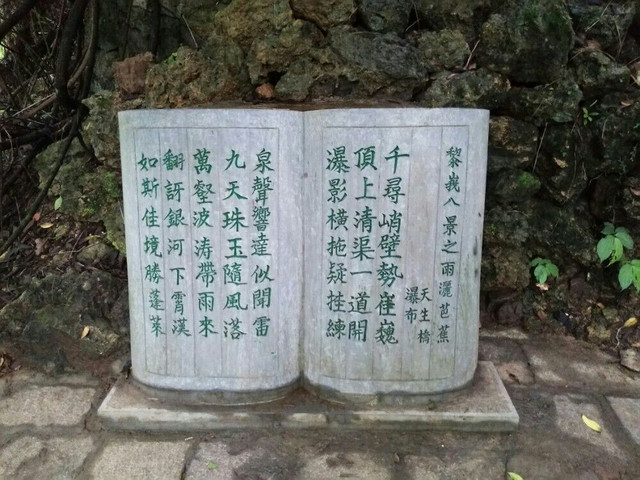 黎峩八景之雨灑芭蕉
天生橋
瀑布
千尋峭壁勢崔巍
頂上清渠一道開
瀑影橫拖疑挂練
泉聲響達似聞雷
九天珠玉隨風落
萬壑波涛帶雨來
翻訝銀河下霄漢
如斯佳境勝蓬萊